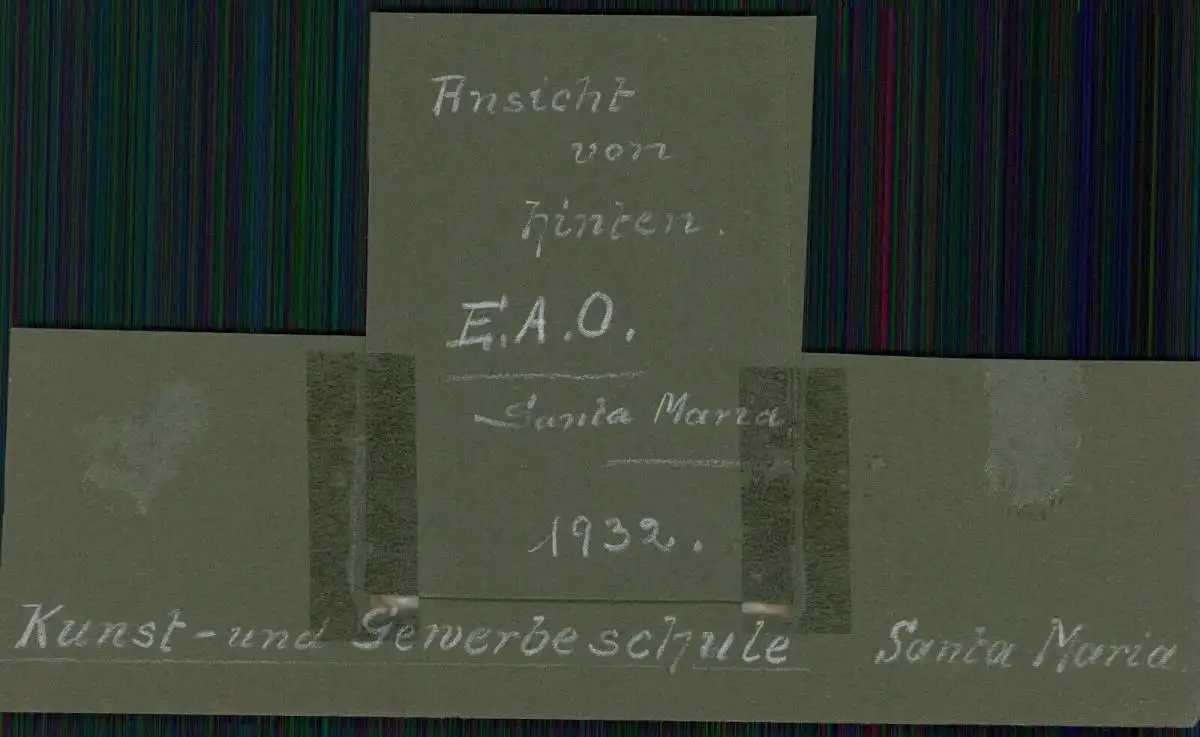 Ansicht
von
hinten.
E.A.O.
Santa Maria
1932.
Kunst- und Gewerbeschule Santa Maria